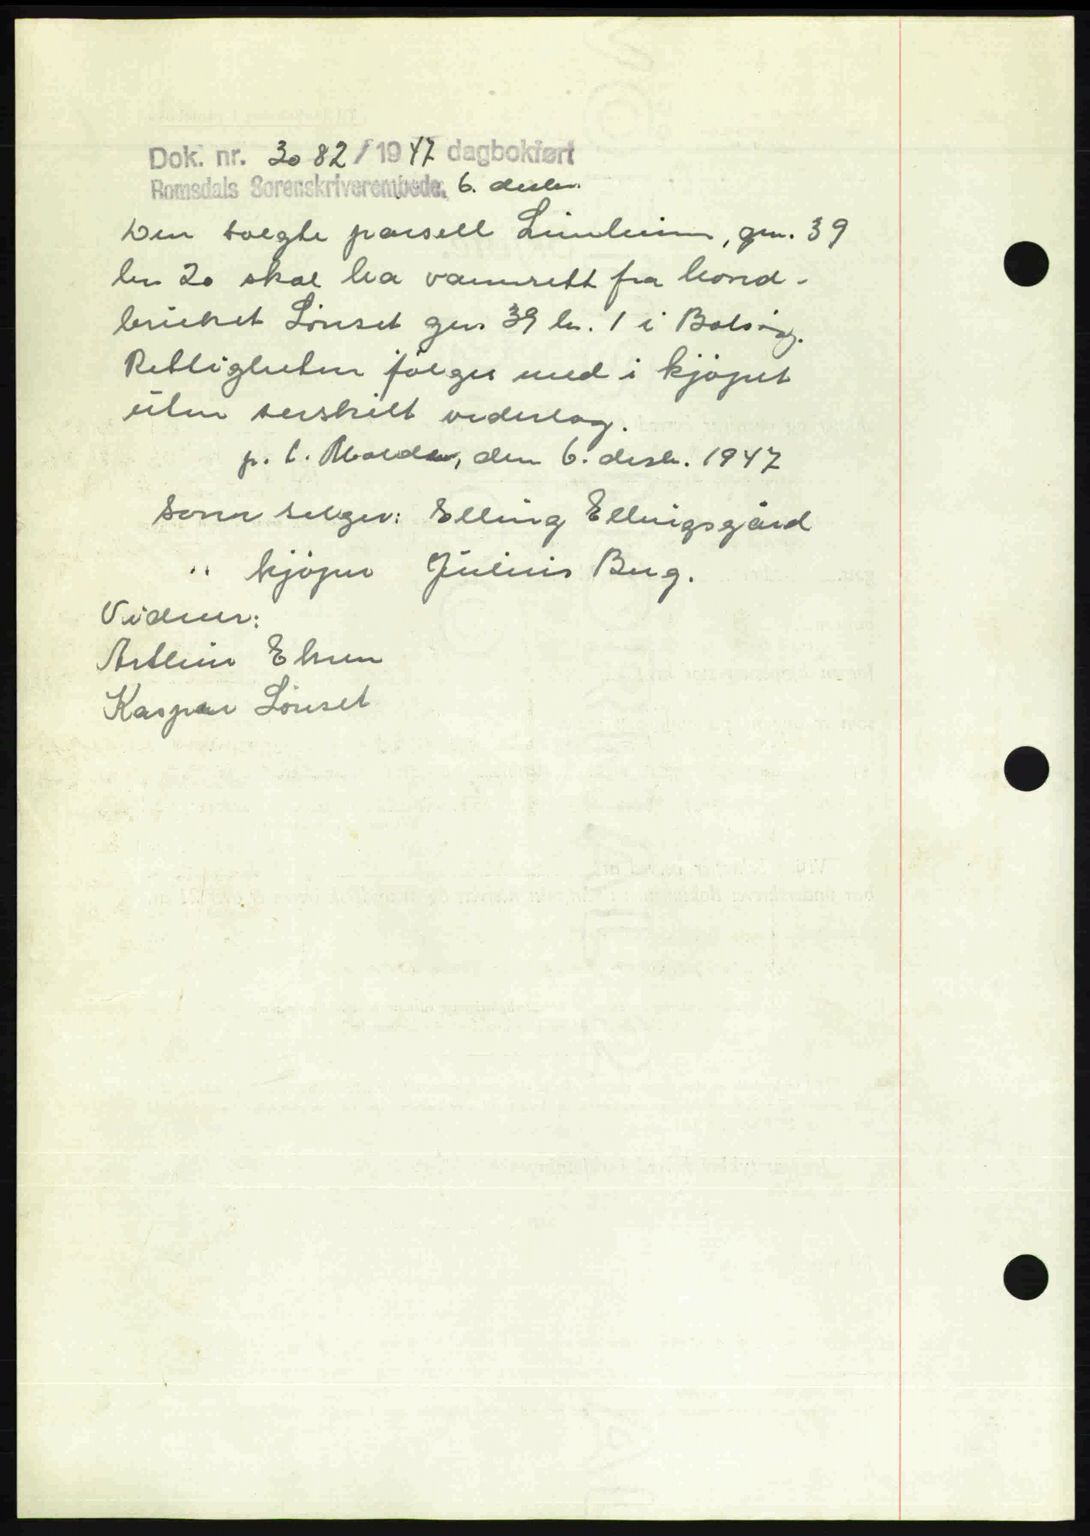 Dok. nr. 3082/1947 dagbokført
Romsdals Sorenskriverembede, 6. desbr.
Den solgte parsell Limheim, gnr. 39
bnr 20 skal ha vannrett fra hoved-
bruket Lönset gnr 39 bnr. 1 i Bolsöy.
Rettigheten følger med i kjöpet
uten serskilt vederlag.
p. t. Molde, den 6. desbr. 1947
Som selger: Elling Ellingsgård
" kjöper Julius Berg.
Vidner:
Kaspar Lönset